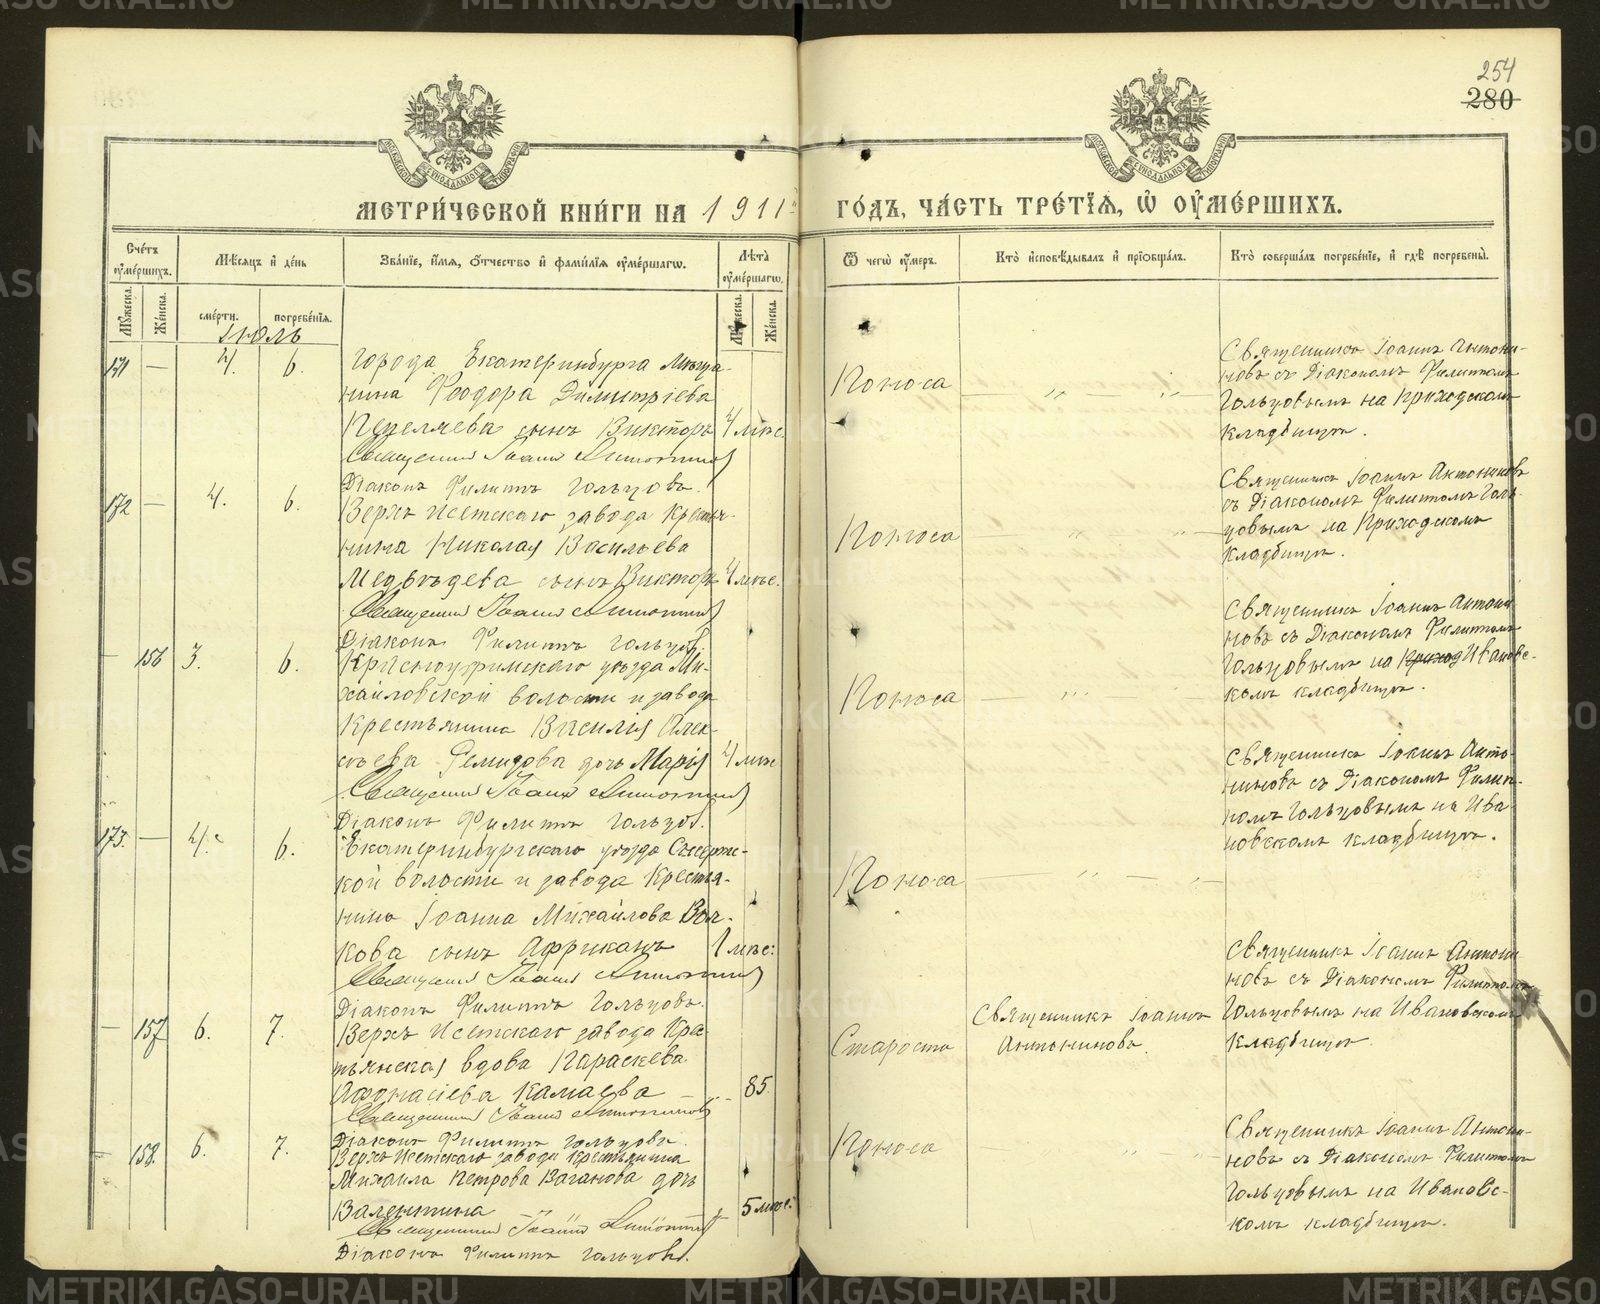 254
280
МЕТРИ́ЧЕСКОЙ КНИ́ГИ НА 1911 ГО́ДЪ, ЧА́СТЬ ТРЕ́ТІѦ, Ѡ ОУМЕ́РШИХЪ.
Сче́тъ оуме́ршихъ.
Мѣ́сѧцъ и де́нь
Зва́нїе, и́мѧ, о́тчество и фами́лїѧ оуме́ршагѡ.
Лѣ́та оуме́ршагѡ.
Ѿ чегѡ̀ оу́меръ.
Кто̀ исповѣ́дывалъ и прїобща́лъ.
Кто̀ соверша́лъ погребе́нїе, и гдѣ̀ погребены̀.
Мꙋ́жеска.
Же́нска.
сме́рти.
погребе́нїѧ.
Мꙋ́жеска.
Же́нска.
Іюль
171 — 4. 6.
города Екатеринбурга мѣща-
нина Феодора Димитріева
сынъ Викторъ 4 мѣс.
Священникъ Іоаннъ Антониновъ
Діаконъ Филиппъ Гольцовъ.
Поноса
Священникъ Іоаннъ Антони-
новъ съ Діакономъ Филиппомъ
Гольцовымъ на Приходскомъ
кладбищѣ.
172 — 4. 6.
Верхъ Исетскаго завода кресть-
нина Николая Васильева
Медвѣдева сынъ Викторъ 4 мѣс.
Священникъ Іоаннъ Антониновъ
Діаконъ Филиппъ Гольцовъ.
Поноса
Священникъ Іоаннъ Антониновъ
съ Діакономъ Филиппомъ Голь-
цовымъ на Приходскомъ
кладбищѣ.
— 156 3. 6.
Красноуфимскаго уѣзда Ми-
хайловской волости и завода
крестьянина Василія Алек-
сѣева Демидова дочь Марія 4 мѣс
Священникъ Іоаннъ Антониновъ
Діаконъ Филиппъ Гольцов.
Поноса
Священникъ Іоаннъ Антони
новъ съ Діакономъ Филиппомъ
Гольцовымъ на Приход Ивановс-
комъ кладбищѣ.
173. — 4. 6.
Екатеринбургскаго уѣзда Сысертс-
кой волости и завода крестья-
нина Іоанна Михайлова Вол-
кова сынъ Африканъ 1 мѣс:
Священникъ Іоаннъ Антониновъ
Діаконъ Филиппъ Гольцовъ.
Поноса
Священникъ Іоаннъ Анто-
ниновъ съ Діакономъ Филип-
помъ Гольцовымъ на Ива-
новскомъ кладбищѣ.
— 157 6. 7.
Верхъ Исетскаго завода Крес
тьянская вдова Параскева
Афонасіева Камаева — 85.
Священникъ Іоаннъ Антониновъ
Діаконъ Филиппъ Гольцовъ.
Старости
Священникъ Іоаннъ
Антониновъ.
Священникъ Іоаннъ Антони
новъ съ Діакономъ Филиппомъ
Гольцовымъ на Ивановскомъ
кладбищѣ.
— 158. 6. 7.
Верхъ Исетскаго завода крестьянина
Михаила Петрова Ваганова дочь
Валентина 5 мѣс.
Священникъ Іоаннъ Антониновъ
Діаконъ Филиппъ Гольцовъ.
Поноса
Священникъ Іоаннъ Антони-
новъ съ Діакономъ Филиппомъ
Гольцовымъ на Ивановс-
комъ кладбищѣ.
METRIKI.GASO-URAL.RU